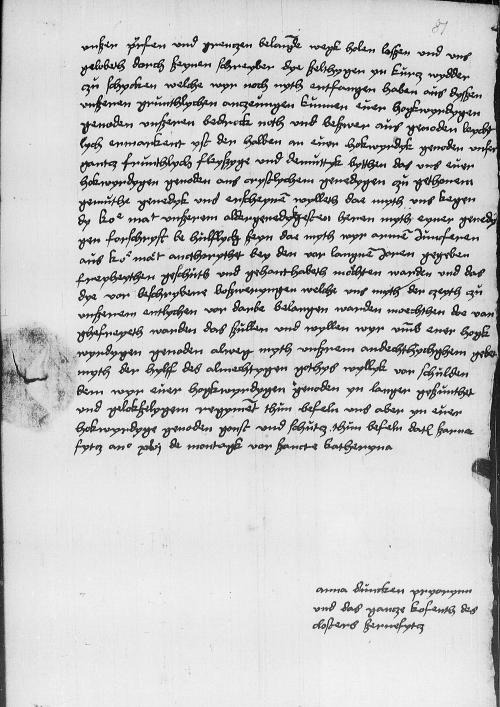 81
unßer persen und grenczen belangde weyk holen lossen und uns
gelobeth dorch seynen schreyber dye selthygen yn kurcz wydder
czu schycken welche wyr noch nyth entfangen haben aus dyssen
unseren grunthlychen anczeungen kunnen euer hogkwyrdygen
genoden unseren bedruck noth und beswer aus genoden leycht
lych enmarkent yst der halben an euer hokwyrdyge genoden unser
gantcz frunthlych fleyssyge und demuttyk bytthen das uns euer
hokwyrdygen genoden aus crystlychem genedygen czu gethonem
gemuthe genedyk und erscheynen wylleth das myth uns kegen
dy ko mat unserem aldergenedygesten heren myth eyner genedy
gen forschryft be hulflych seyn das myth wyr armen junferen
aus ko mat anothrythet bey den vor langen joren gegeben
freyheythen geschuth und gehanthabeth mochten warden und das
dye vor beschrybene beswerungen welche uns myth den czeyth czu
unserem entlychen vor darbe belangen warden mochthen doe van
ghefreyeth warden das sullen und wyllen wyr umb euer hogk
wyrdygen genoden alweg myth unsrem andechthychghem gebet
myth der hylf des almechtygen gothys wyllyk vor schulden
dem wyr euer hogkwyrdygen genoden yn langer gesunthet
und geloksselygem regyment thun befeln uns aber yn euer
hokwyrdyge genoden gonst und schutcz thun befeln datum serne
fytcz ano xlvj de montagk vor sancte katheryna
anna duncken pryorynn
und das gancze kofenth des
closters sernefytcz